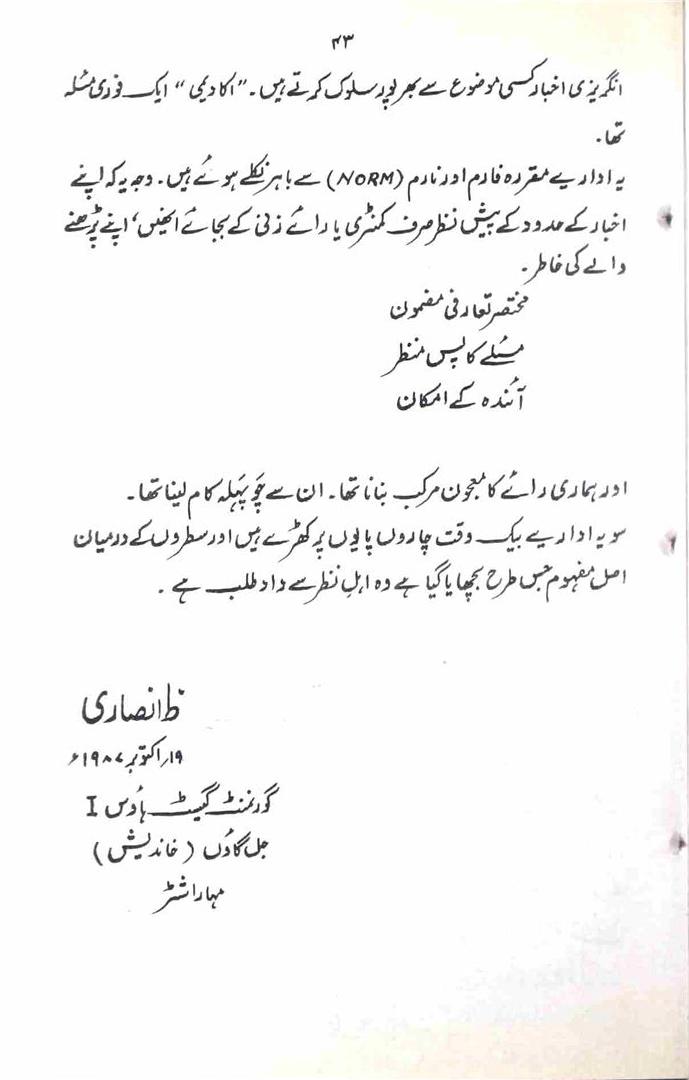 ۴۳
انگریزی اخبار کسی موضوع سے بھرپور سلوک کرتے ہیں۔ "اکادیمی" ایک فوری مسئلہ
تھا۔
یہ اداریے مقررہ فارم اور نارم (NORM) سے باہر نکلے ہوئے ہیں۔ وجہ یہ کہ اپنے
اخبار کے حدود کے پیش نظر صرف کمنٹری یا رائے زنی کے بجائے انھیں، اپنے پڑھنے
والے کی خاطر۔
مختصر تعارفی مضمون
مسئلے کا پس منظر
آئندہ کے امکان
اور ہماری رائے کا معجون مرکب بنانا تھا۔ ان سے چَو پَہلہ کام لینا تھا۔
سو یہ اداریے بیک وقت چاروں پایوں پر کھڑے ہیں اور سطروں کے درمیان
اصل مفہوم جس طرح بچھایا گیا ہے وہ اہلِ نظر سے داد طلب ہے۔
ظ انصاری
۱۹؍ اکتوبر ۱۹۸۷ء
گورنمنٹ گیسٹ ہاؤس I
جل گاؤں (خاندیش)
مہاراشٹر